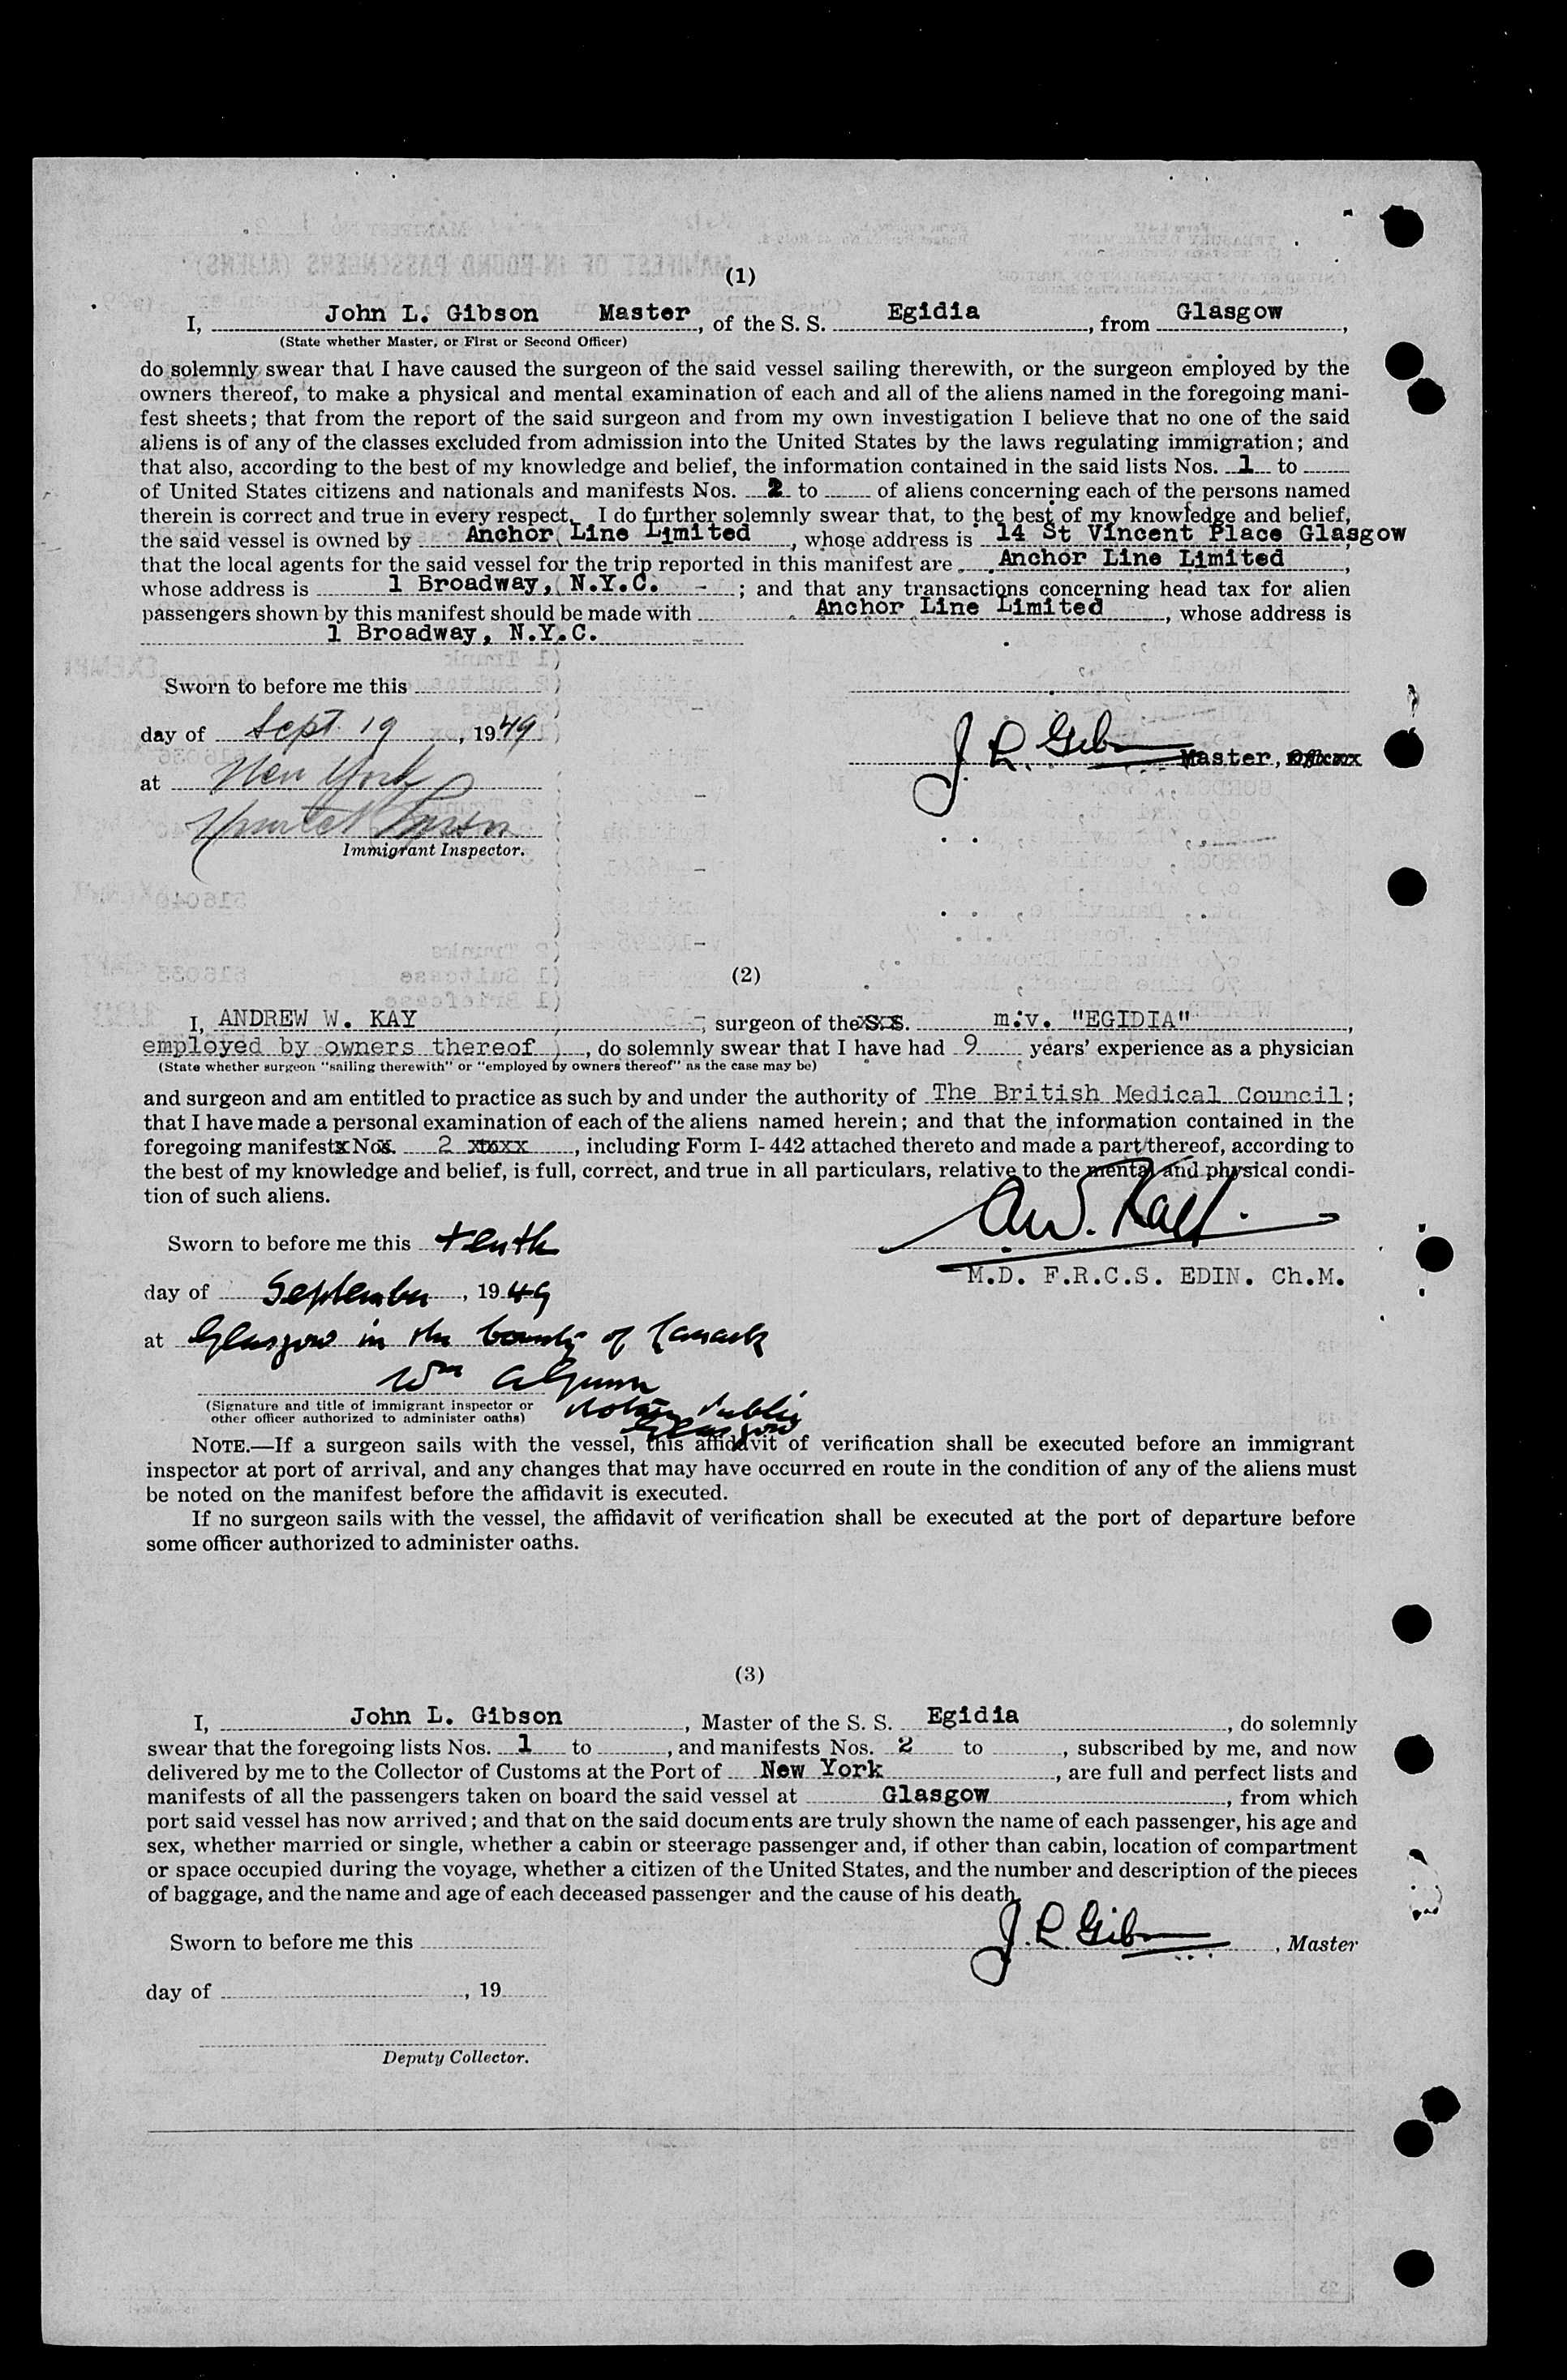 (1)
I, John L. Gibson Master, of the S. S. Egidia, from Glasgow,
(State whether Master, or First or Second Officer)
do solemnly swear that I have caused the surgeon of the said vessel sailing therewith, or the surgeon employed by the
owners thereof, to make a physical and mental examination of each and all of the aliens named in the foregoing mani-
fest sheets; that from the report of the said surgeon and from my own investigation I believe that no one of the said
aliens is of any of the classes excluded from admission into the United States by the laws regulating immigration; and
that also, according to the best of my knowledge and belief, the information contained in the said lists Nos. 1 to
of United States citizens and nationals and manifests Nos. 2 to of aliens concerning each of the persons named
therein is correct and true in every respect. I do further solemnly swear that, to the best of my knowledge and belief,
the said vessel is owned by Anchor Line Limited, whose address is 14 St Vincent Place Glasgow,
that the local agents for the said vessel for the trip reported in this manifest are Anchor Line Limited,
whose address is 1 Broadway, N.Y.C. - ; and that any transactions concerning head tax for alien
passengers shown by this manifest should be made with Anchor Line Limited, whose address is
1 Broadway, N.Y.C.
Sworn to before me this
day of Sept. 19, 1949
J L Gibson Master,
at New York
Immigrant Inspector.
(2)
I, ANDREW W. KAY, surgeon of the S.S. m.v. "EGIDIA",
employed by owners thereof, do solemnly swear that I have had 9 years' experience as a physician
(State whether surgeon "sailing therewith" or "employed by owners thereof" as the case may be)
and surgeon and am entitled to practice as such by and under the authority of The British Medical Council;
that I have made a personal examination of each of the aliens named herein; and that the information contained in the
foregoing manifests Nos. 2 to xxx, including Form I-442 attached thereto and made a part thereof, according to
the best of my knowledge and belief, is full, correct, and true in all particulars, relative to the mental and physical condi-
tion of such aliens.
A.W. Kay
Sworn to before me this tenth
M.D. F.R.C.S. EDIN. Ch.M.
day of September, 1949
at Glasgow in the County of Lanark
Wm A Gunn
(Signature and title of immigrant inspector or
other officer authorized to administer oaths)
Notary Public
Glasgow
NOTE.—If a surgeon sails with the vessel, this affidavit of verification shall be executed before an immigrant
inspector at port of arrival, and any changes that may have occurred en route in the condition of any of the aliens must
be noted on the manifest before the affidavit is executed.
If no surgeon sails with the vessel, the affidavit of verification shall be executed at the port of departure before
some officer authorized to administer oaths.
(3)
I, John L. Gibson, Master of the S. S. Egidia, do solemnly
swear that the foregoing lists Nos. 1 to , and manifests Nos. 2 to , subscribed by me, and now
delivered by me to the Collector of Customs at the Port of New York, are full and perfect lists and
manifests of all the passengers taken on board the said vessel at Glasgow, from which
port said vessel has now arrived; and that on the said documents are truly shown the name of each passenger, his age and
sex, whether married or single, whether a cabin or steerage passenger and, if other than cabin, location of compartment
or space occupied during the voyage, whether a citizen of the United States, and the number and description of the pieces
of baggage, and the name and age of each deceased passenger and the cause of his death.
Sworn to before me this
J. L. Gibson, Master
day of , 19
Deputy Collector.